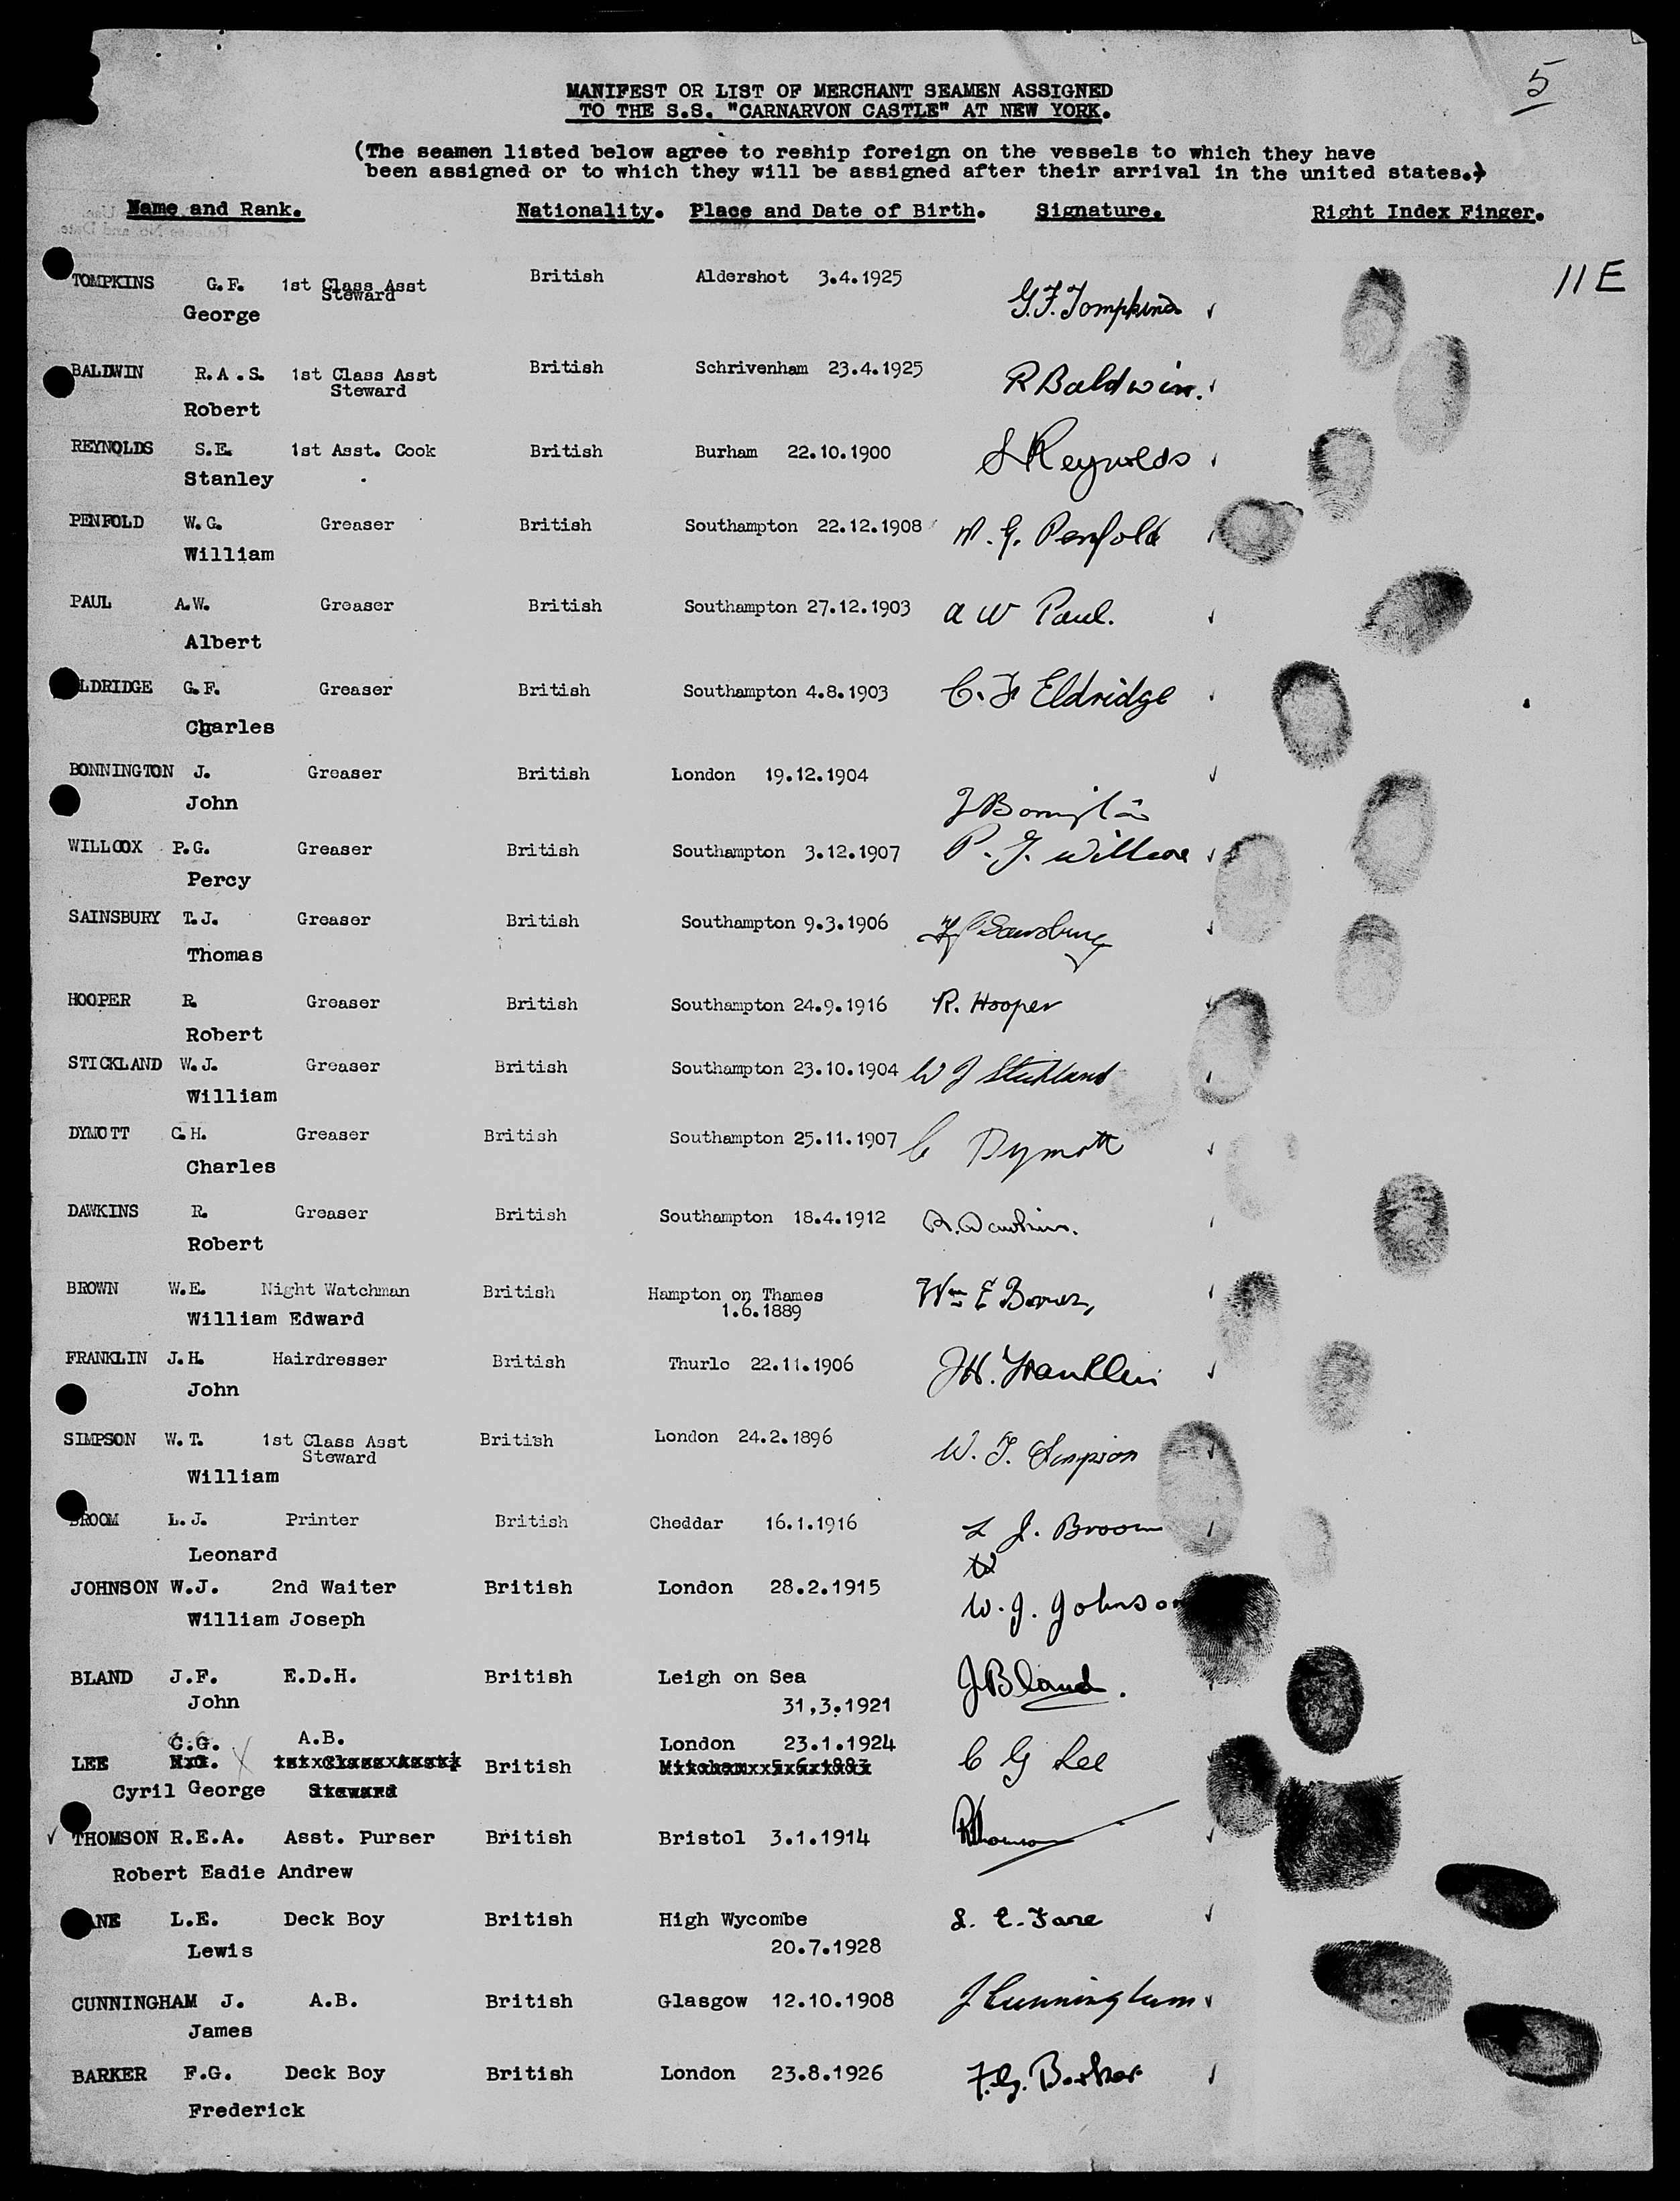 5
MANIFEST OR LIST OF MERCHANT SEAMEN ASSIGNED
TO THE S.S. "CARNARVON CASTLE" AT NEW YORK.
(The seamen listed below agree to reship foreign on the vessels to which they have
been assigned or to which they will be assigned after their arrival in the united states.)
Name and Rank. Nationality. Place and Date of Birth. Signature. Right Index Finger.
11E
TOMPKINS G.F. 1st Class Asst British Aldershot 3.4.1925 G.F. Tompkins
Steward
George
BALDWIN R.A.S. 1st Class Asst British Schrivenham 23.4.1925 R Baldwin.
Steward
Robert
REYNOLDS S.E. 1st Asst. Cook British Burham 22.10.1900 S Reynolds
Stanley
PENFOLD W.G. Greaser British Southampton 22.12.1908 W. G. Penfold
William
PAUL A.W. Greaser British Southampton 27.12.1903 A W Paul.
Albert
LDRIDGE G.F. Greaser British Southampton 4.8.1903 C. F Eldridge
Charles
BONNINGTON J. Greaser British London 19.12.1904
John
WILLCOX P.G. Greaser British Southampton 3.12.1907 P. G. Willcox
Percy
SAINSBURY T.J. Greaser British Southampton 9.3.1906 T J Sainsbury
Thomas
HOOPER R. Greaser British Southampton 24.9.1916 R. Hooper
Robert
STICKLAND W.J. Greaser British Southampton 23.10.1904 W J Stickland
William
DYMOTT C.H. Greaser British Southampton 25.11.1907 C Dymott
Charles
DAWKINS R. Greaser British Southampton 18.4.1912 R. Dawkins.
Robert
BROWN W.E. Night Watchman British Hampton on Thames Wm E Brown,
1.6.1889
William Edward
FRANKLIN J.H. Hairdresser British Thurlo 22.11.1906 J H. Franklin
John
SIMPSON W.T. 1st Class Asst British London 24.2.1896 W. T. Simpson
Steward
William
BROOM L.J. Printer British Cheddar 16.1.1916 L J. Broom
Leonard
JOHNSON W.J. 2nd Waiter British London 28.2.1915 W. J. Johnson
William Joseph
BLAND J.F. E.D.H. British Leigh on Sea J Bland.
John 31,3.1921
C.G. A.B. London 23.1.1924
LEE British C G Lee
Cyril George Steward
THOMSON R.E.A. Asst. Purser British Bristol 3.1.1914 R Thomson
Robert Eadie Andrew
ANE L.E. Deck Boy British High Wycombe L. E. Fane
Lewis 20.7.1928
CUNNINGHAM J. A.B. British Glasgow 12.10.1908 J Cunningham
James
BARKER F.G. Deck Boy British London 23.8.1926 F.G. Barker
Frederick